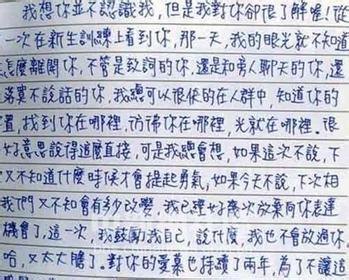 我想你並不認識我,但是我對你卻很了解喔!從
一次在新生訓練上看到你,那一天,我的眼光就不知道
怎麼離開你,不管是致詞的你,還是和旁人聊天的你,還
落寞不說話的你,我總可以很快的在人群中,知道你的
置,找到你在哪裡,彷彿你在哪裡,光就在哪裡。很
好意思說得這麼直接,可是我總會想,如果這次不說,下
又不知道什麼時候才會提起勇氣,如果今天不說,下次相
我們又不知會有多少改變,我已經好幾次放棄向你表達
機會了,這一次,我鼓勵我自己,說什麼,我也不會放過你,
哈,又太大膽了。對你的愛慕也持續了兩年,為了不讓這